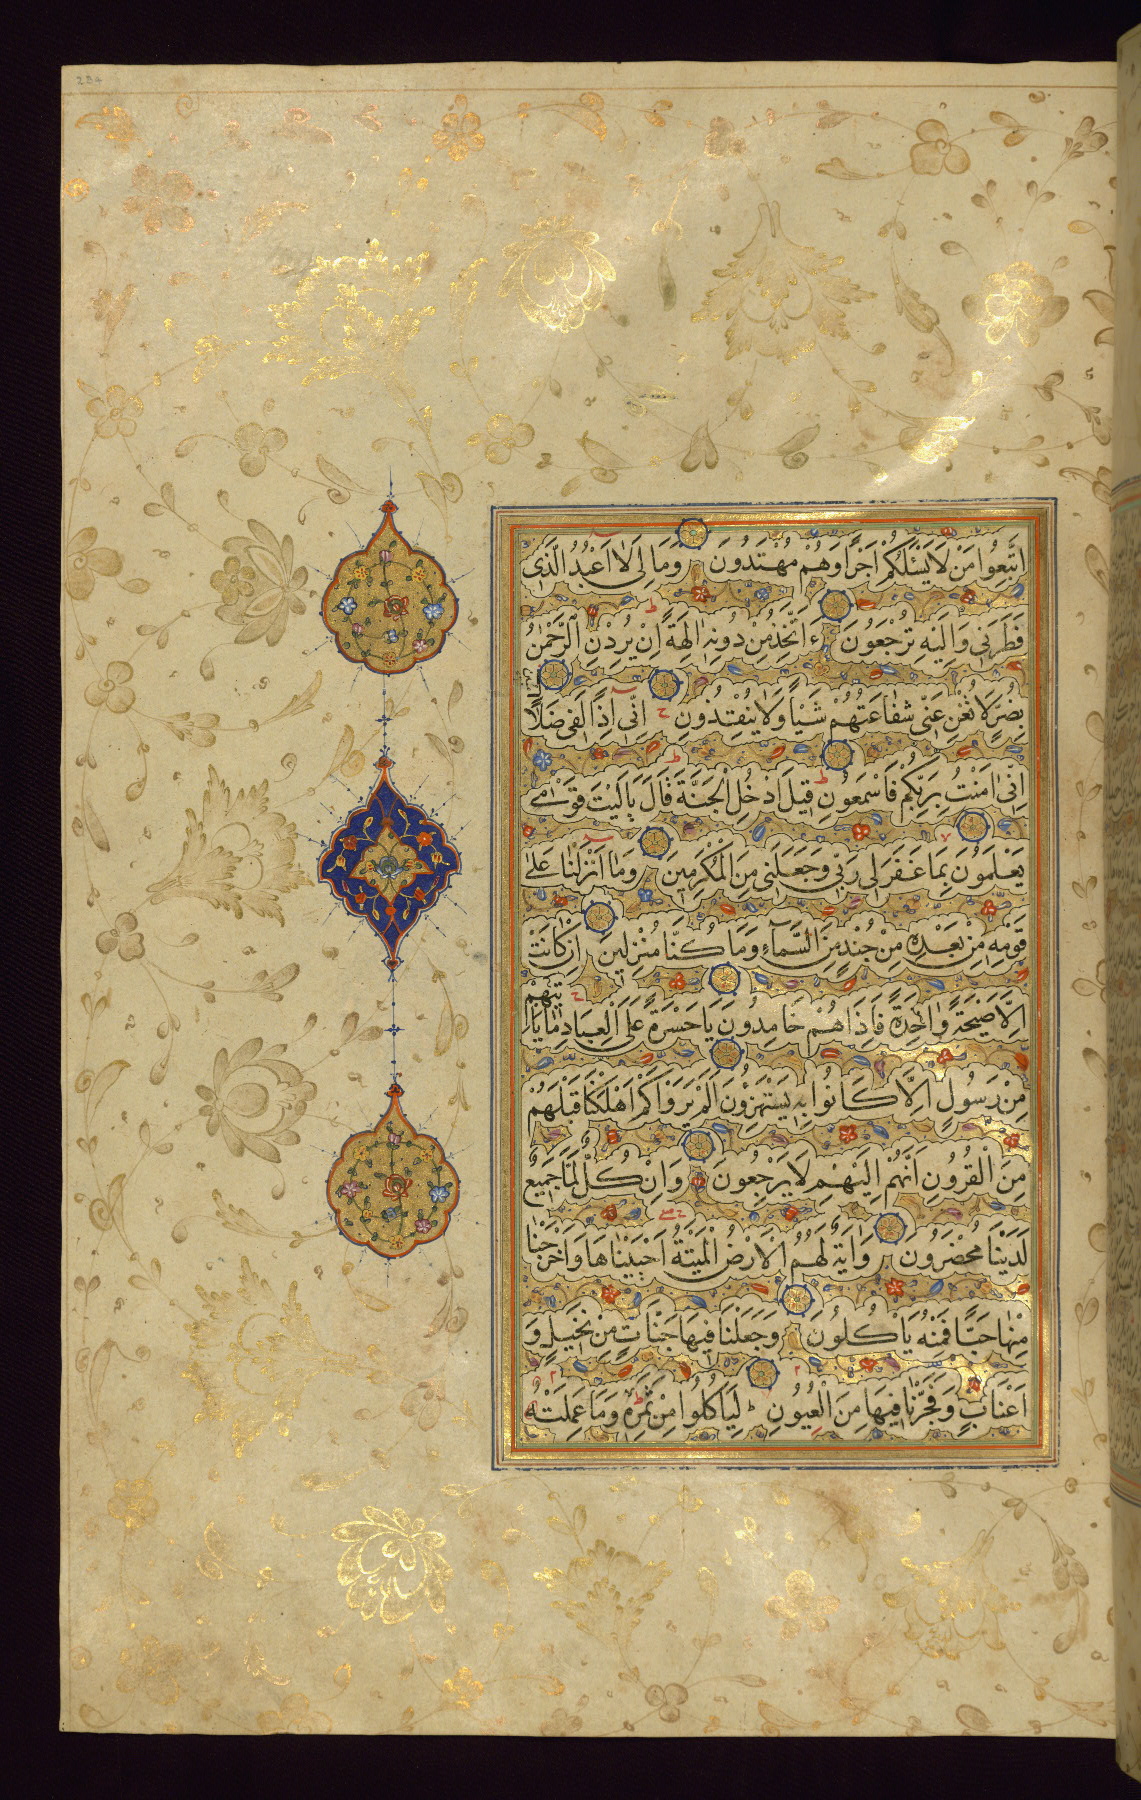 اتَّبِعُوا مَنْ لَا يَسْئَلُكُمْ اَجْرًا وَهُمْ مُهْتَدُونَ وَمَا لِىَ لَا اَعْبُدُ الَّذِى
فَطَرَنِى وَاِلَيْهِ تُرْجَعُونَ ءَاَتَّخِذُ مِنْ دُونِهِ اٰلِهَةً اِنْ يُرِدْنِ الرَّحْمٰنُ
بِضُرٍّ لَا تُغْنِ عَنِّى شَفَاعَتُهُمْ شَيْاً وَلَا يُنْقِذُونِ اِنِّى اِذًا لَفِى ضَلَالٍ
اِنِّى اٰمَنْتُ بِرَبِّكُمْ فَاسْمَعُونِ قِيلَ ادْخُلِ الْجَنَّةَ قَالَ يَا لَيْتَ قَوْمِى
يَعْلَمُونَ بِمَا غَفَرَ لِى رَبِّى وَجَعَلَنِى مِنَ الْمُكْرَمِينَ وَمَا اَنْزَلْنَا عَلَى
قَوْمِهِ مِنْ بَعْدِهِ مِنْ جُنْدٍ مِنَ السَّمَاءِ وَمَا كُنَّا مُنْزِلِينَ اِنْ كَانَتْ
اِلَّا صَيْحَةً وَاحِدَةً فَاِذَا هُمْ خَامِدُونَ يَا حَسْرَةً عَلَى الْعِبَادِ مَا يَاْتِيهِمْ
مِنْ رَسُولٍ اِلَّا كَانُوا بِهِ يَسْتَهْزِؤُنَ اَلَمْ يَرَوْا كَمْ اَهْلَكْنَا قَبْلَهُمْ
مِنَ الْقُرُونِ اَنَّهُمْ اِلَيْهِمْ لَا يَرْجِعُونَ وَاِنْ كُلٌّ لَمَّا جَمِيعٌ
لَدَيْنَا مُحْضَرُونَ وَاٰيَةٌ لَهُمُ الْاَرْضُ الْمَيْتَةُ اَحْيَيْنَاهَا وَاَخْرَجْنَا
مِنْهَا حَبًّا فَمِنْهُ يَاْكُلُونَ وَجَعَلْنَا فِيهَا جَنَّاتٍ مِنْ نَخِيلٍ وَ
اَعْنَابٍ وَفَجَّرْنَا فِيهَا مِنَ الْعُيُونِ لِيَاْكُلُوا مِنْ ثَمَرِهِ وَمَا عَمِلَتْهُ